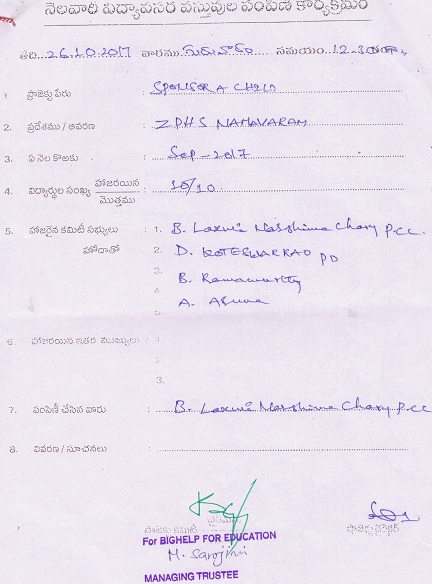 నెలవారీ విద్యావసర వస్తువుల పంపిణీ కార్యక్రమం
తేది. 26.10.2017 వారము గురువారం సమయం. 12-30
1. ప్రాజెక్టు పేరు : SPONSOR A CHILD
2. ప్రదేశము / ఆవరణ : ZPHS NAMAVARAM
3. ఏ నెల కొఱకు : Sep-2017
4. విద్యార్థుల సంఖ్య హాజరయిన / మొత్తము : 10/10
5. హాజరైన కమిటీ సభ్యులు : 1. B. Laxmi Narshima Chary P.CC.
హోదాతో 2. D. KOTESWARRAO PD
3. B. Ramamurthy
4. A. Aruna
5.
6. హాజరయిన ఇతర ముఖ్యులు : 1.
2.
3.
7. పంపిణీ చేసిన వారు : B. Laxmi Narshima Chary P.CC
8. వివరణ / సూచనలు :
ప్రాజెక్టు కమిటీ చైర్మన్ ప్రాజెక్టు డైరెక్టర్
For BIGHELP FOR EDUCATION
M. Sarojini
MANAGING TRUSTEE